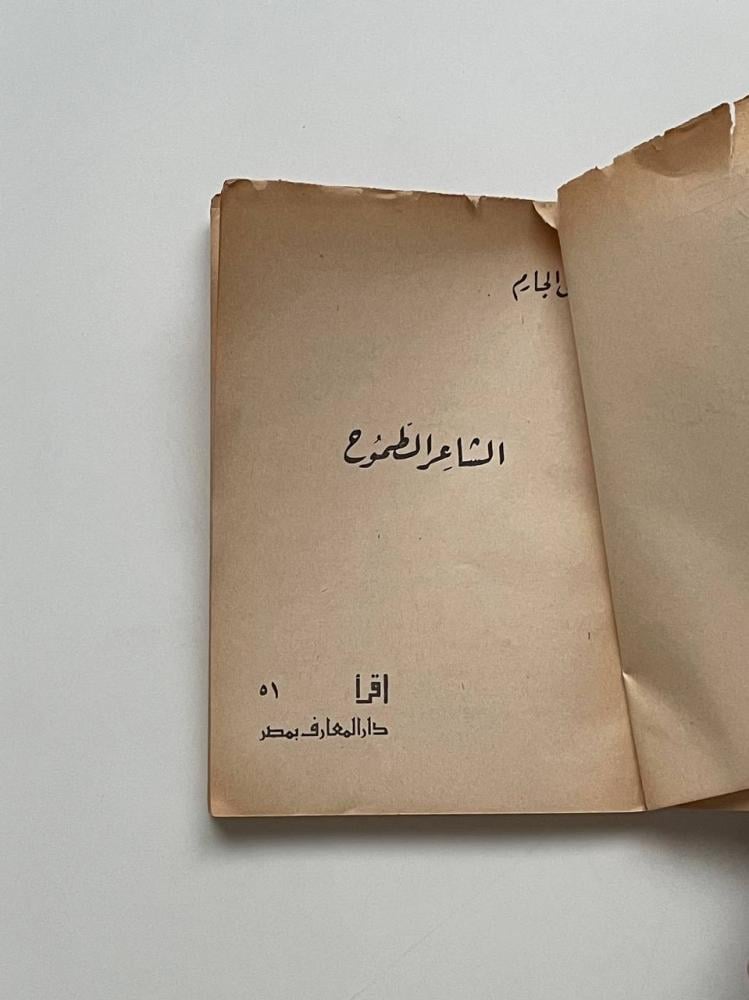 الجارم
الشاعِر الطَّمُوح
اقرأ ٥١
دار المعارف بمصر